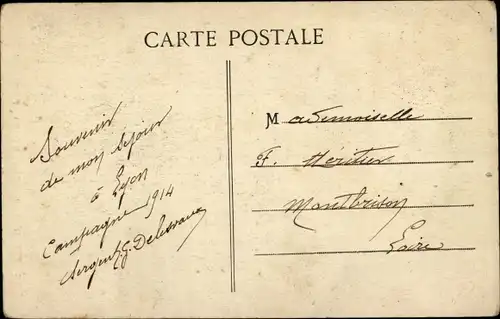 CARTE POSTALE
Souvenir
de mon séjour
à Lyon
Campagne 1914
Sergent
Mademoiselle
F. Héritier
Montbrison
Loire